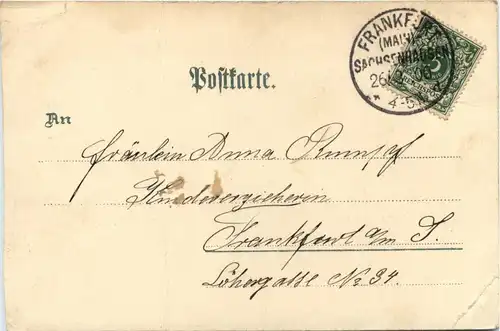 FRANKFURT
(MAIN)
SACHSENHAUSEN
4-5
Postkarte.
An
Fräulein Anna Rumpf
Kindererzieherin
Frankfurt a/m S.
Löhergasse No 34.